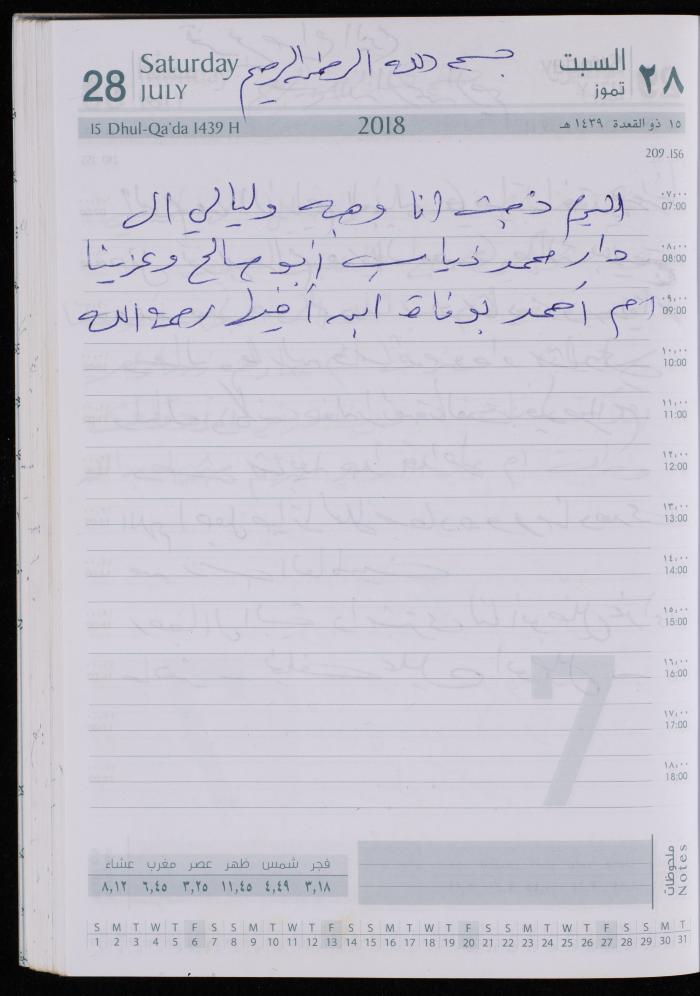 28
Saturday
JULY
بسم الله الرحمن الرحيم
السبت
تموز
٢٨
15 Dhul-Qa'da 1439 H
2018
١٥ ذو القعدة ١٤٣٩ هـ
209.156
اليوم ذهبت انا وجيه وليالي ال
دار محمد ذياب أبو صالح وعزينا
ام أحمد بوفاة ابن أخيها رحمه الله
٠٧:٠٠
07:00
٠٨:٠٠
08:00
٠٩:٠٠
09:00
١٠:٠٠
10:00
١١:٠٠
11:00
١٢:٠٠
12:00
١٣:٠٠
13:00
١٤:٠٠
14:00
١٥:٠٠
15:00
١٦:٠٠
16:00
١٧:٠٠
17:00
١٨:٠٠
18:00
7
فجر شمس ظهر عصر مغرب عشاء
٣,١٨ ٤,٤٩ ١١,٤٥ ٣,٢٥ ٦,٤٥ ٨,١٢
ملحوظات
Notes
S M T W T F S S M T W T F S S M T W T F S S M T W T F S S M T
1 2 3 4 5 6 7 8 9 10 11 12 13 14 15 16 17 18 19 20 21 22 23 24 25 26 27 28 29 30 31